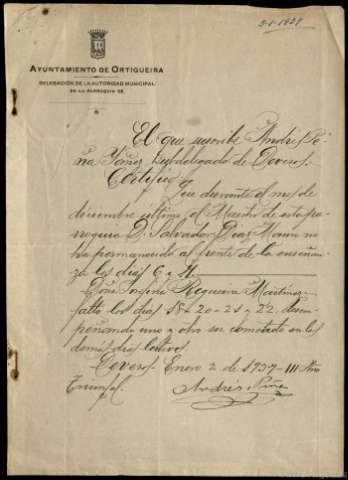 2-1-1939
AYUNTAMIENTO DE ORTIGUEIRA
DELEGACIÓN DE LA AUTORIDAD MUNICIPAL
EN LA PARROQUIA DE
El que suscribe Andrés Pi-
ña Yañez Subdelegado de Devesos.
Certifico
Que durante el mes de
diciembre último el Maestro de esta pa-
rroquia D. Salvador Diaz no
ha permanecido al frente de la enseñan-
za los dias 6 y
Reguera Martinez
falto los dias 18-20-21 y 22. desem-
peñando uno y otro su cometido en los
demás dias lectivos.
Devesos Enero 2 de 1939 - III Año
Triunfal.
Andrés Piña